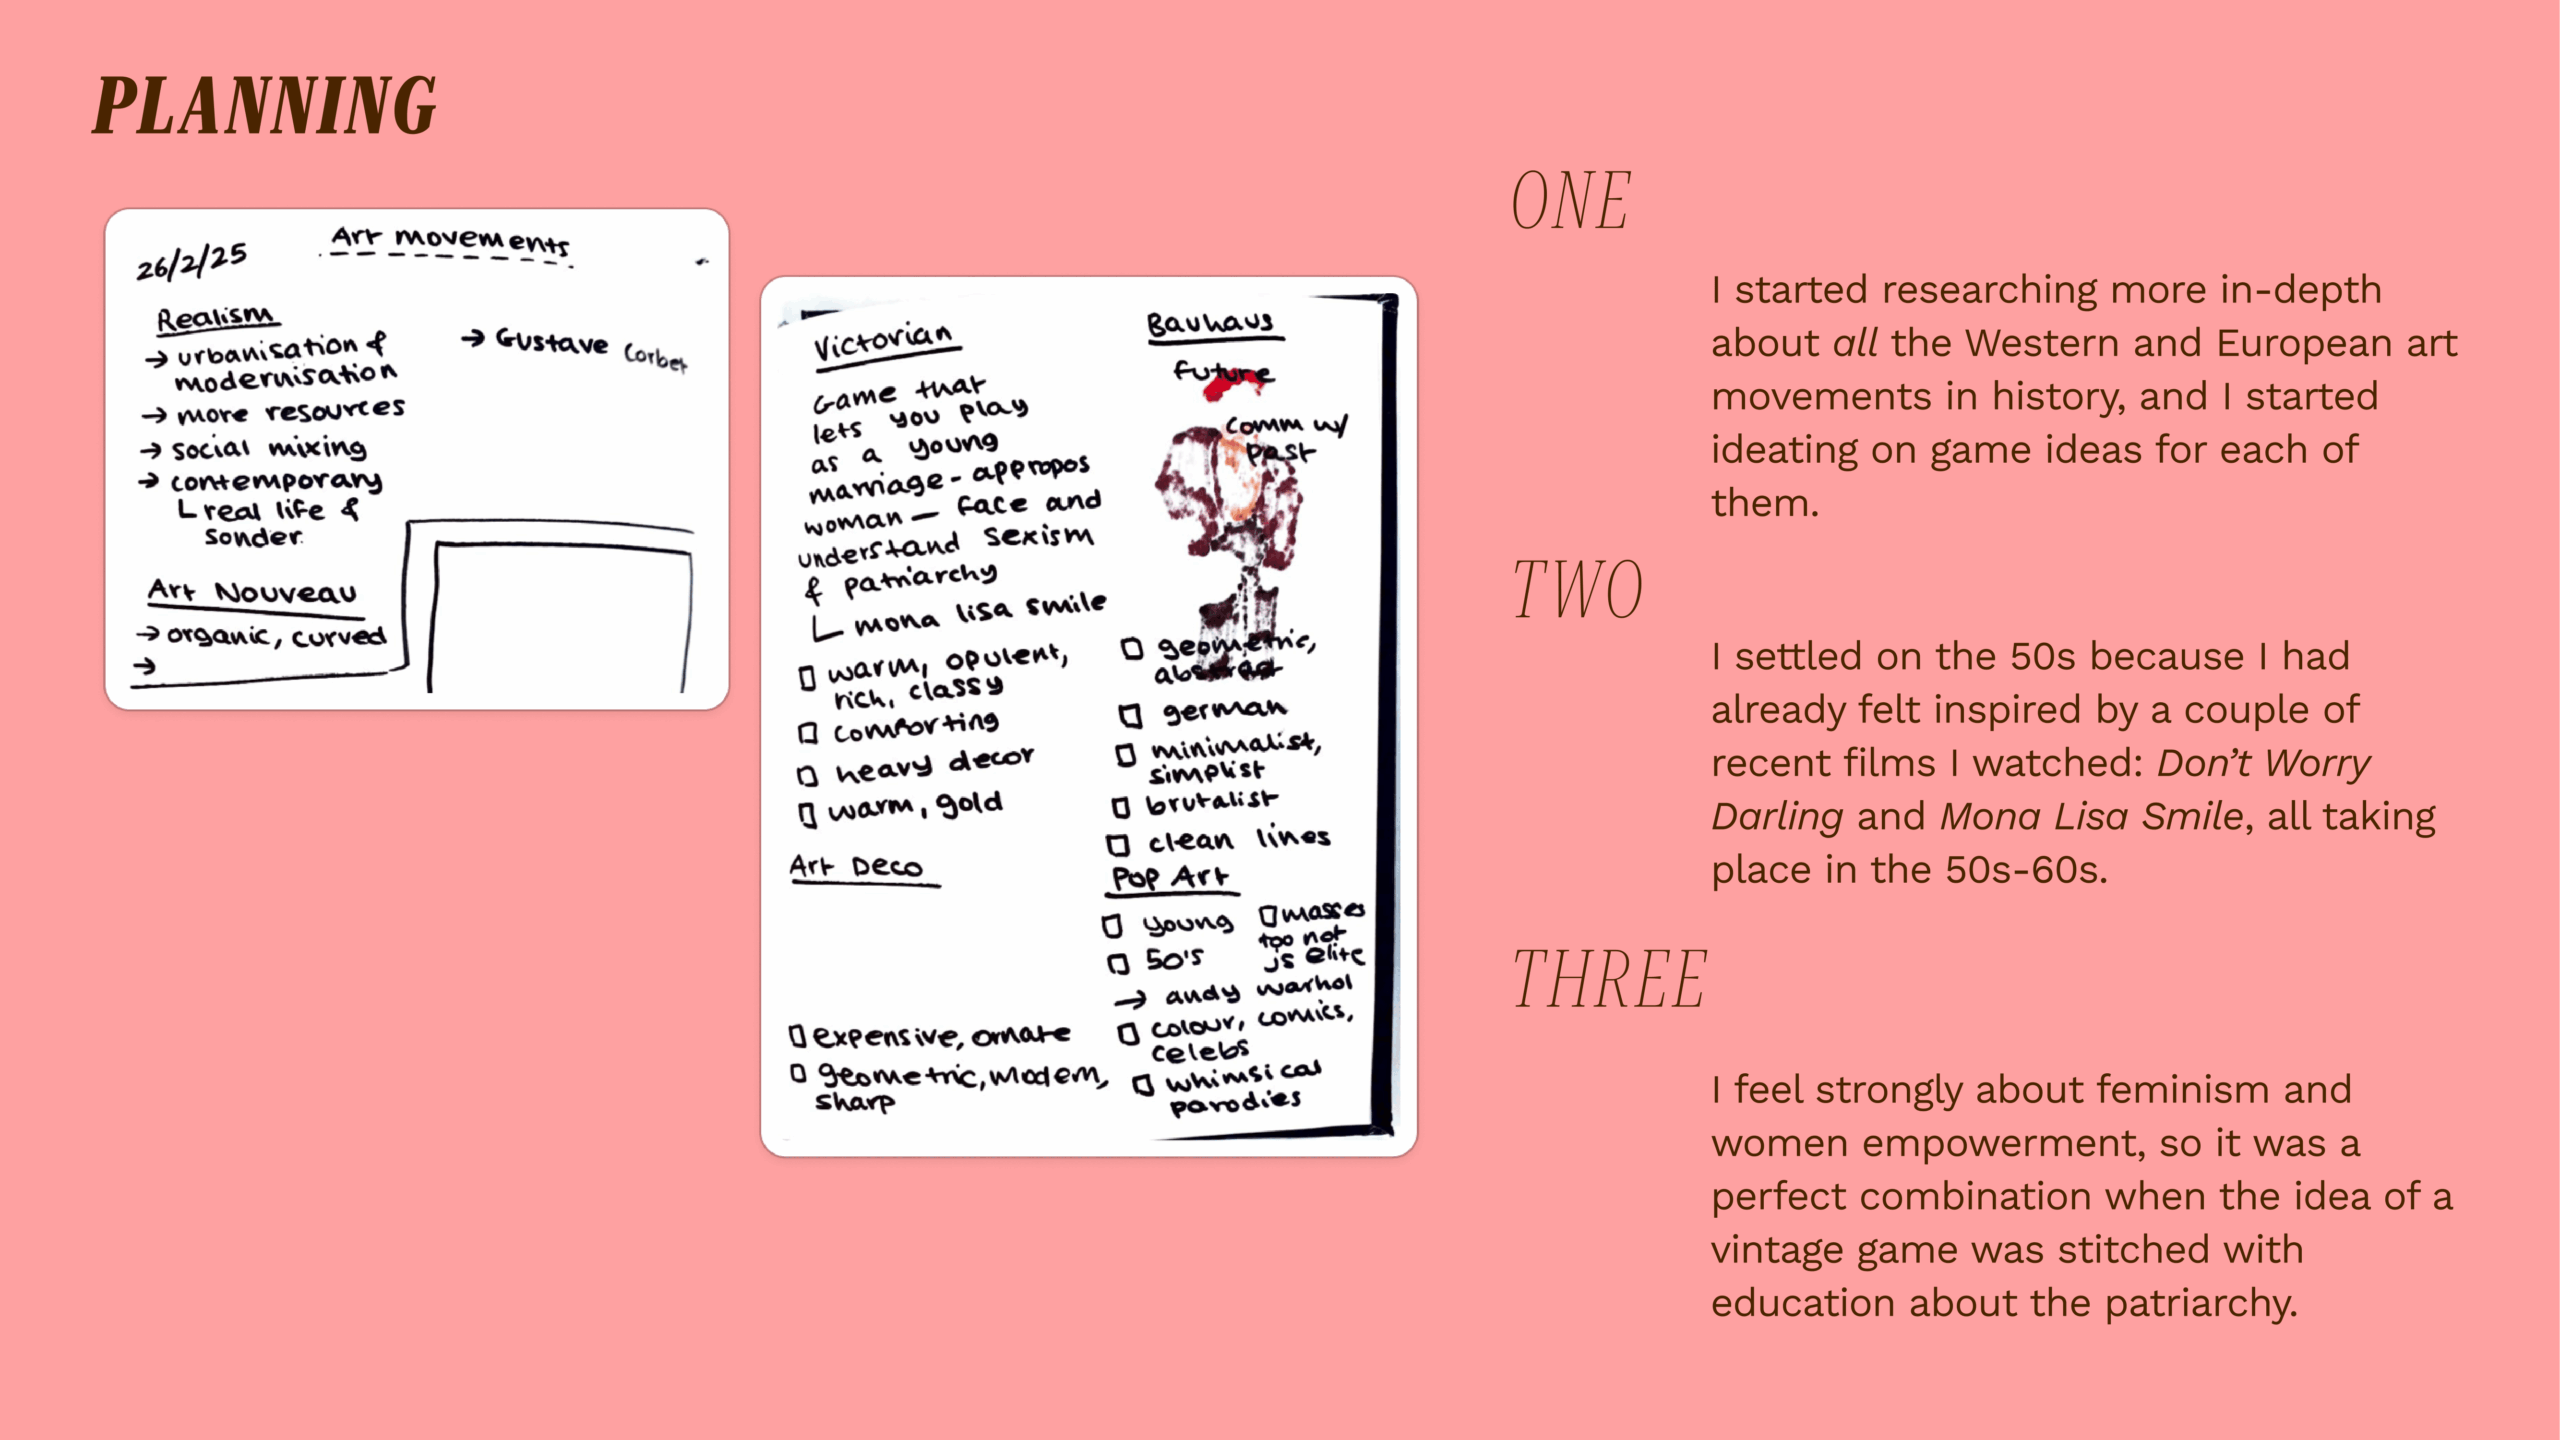 PLANNING
26/2/25
Art movements
Realism
→ urbanisation &
modernisation
→ more resources
→ social mixing
→ contemporary
└ real life &
sonder
→ Gustave Corbet
Art Nouveau
→ organic, curved
→
Victorian
Game that
lets you play
as a young
marriage-appropos
woman — face and
understand sexism
& patriarchy
└ mona lisa smile
□ warm, opulent,
rich, classy
□ comforting
□ heavy decor
□ warm, gold
Art Deco
□ expensive, ornate
□ geometric, modern,
sharp
Bauhaus
future
comm w/
past
□ geometric,
abstract
□ german
□ minimalist,
simplist
□ brutalist
□ clean lines
Pop Art
□ young
□ 50's
□ masses
too not
js elite
→ andy warhol
□ colour, comics,
celebs
□ whimsical
parodies
ONE
I started researching more in-depth
about all the Western and European art
movements in history, and I started
ideating on game ideas for each of
them.
TWO
I settled on the 50s because I had
already felt inspired by a couple of
recent films I watched: Don’t Worry
Darling and Mona Lisa Smile, all taking
place in the 50s-60s.
THREE
I feel strongly about feminism and
women empowerment, so it was a
perfect combination when the idea of a
vintage game was stitched with
education about the patriarchy.